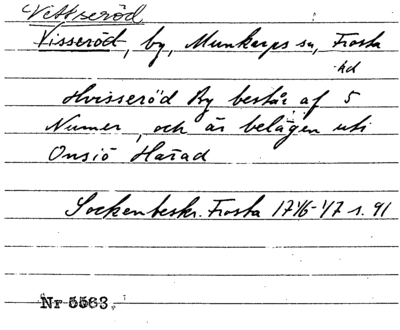 Vittseröd
Visseröd, by, Munkarps sn, Frosta
hd
Hvisseröd By består af 5
Numer, och är belägen uti
Onsiö Härad
Sockenbeskr. Frosta 1746-47 s. 91
Nr 5563